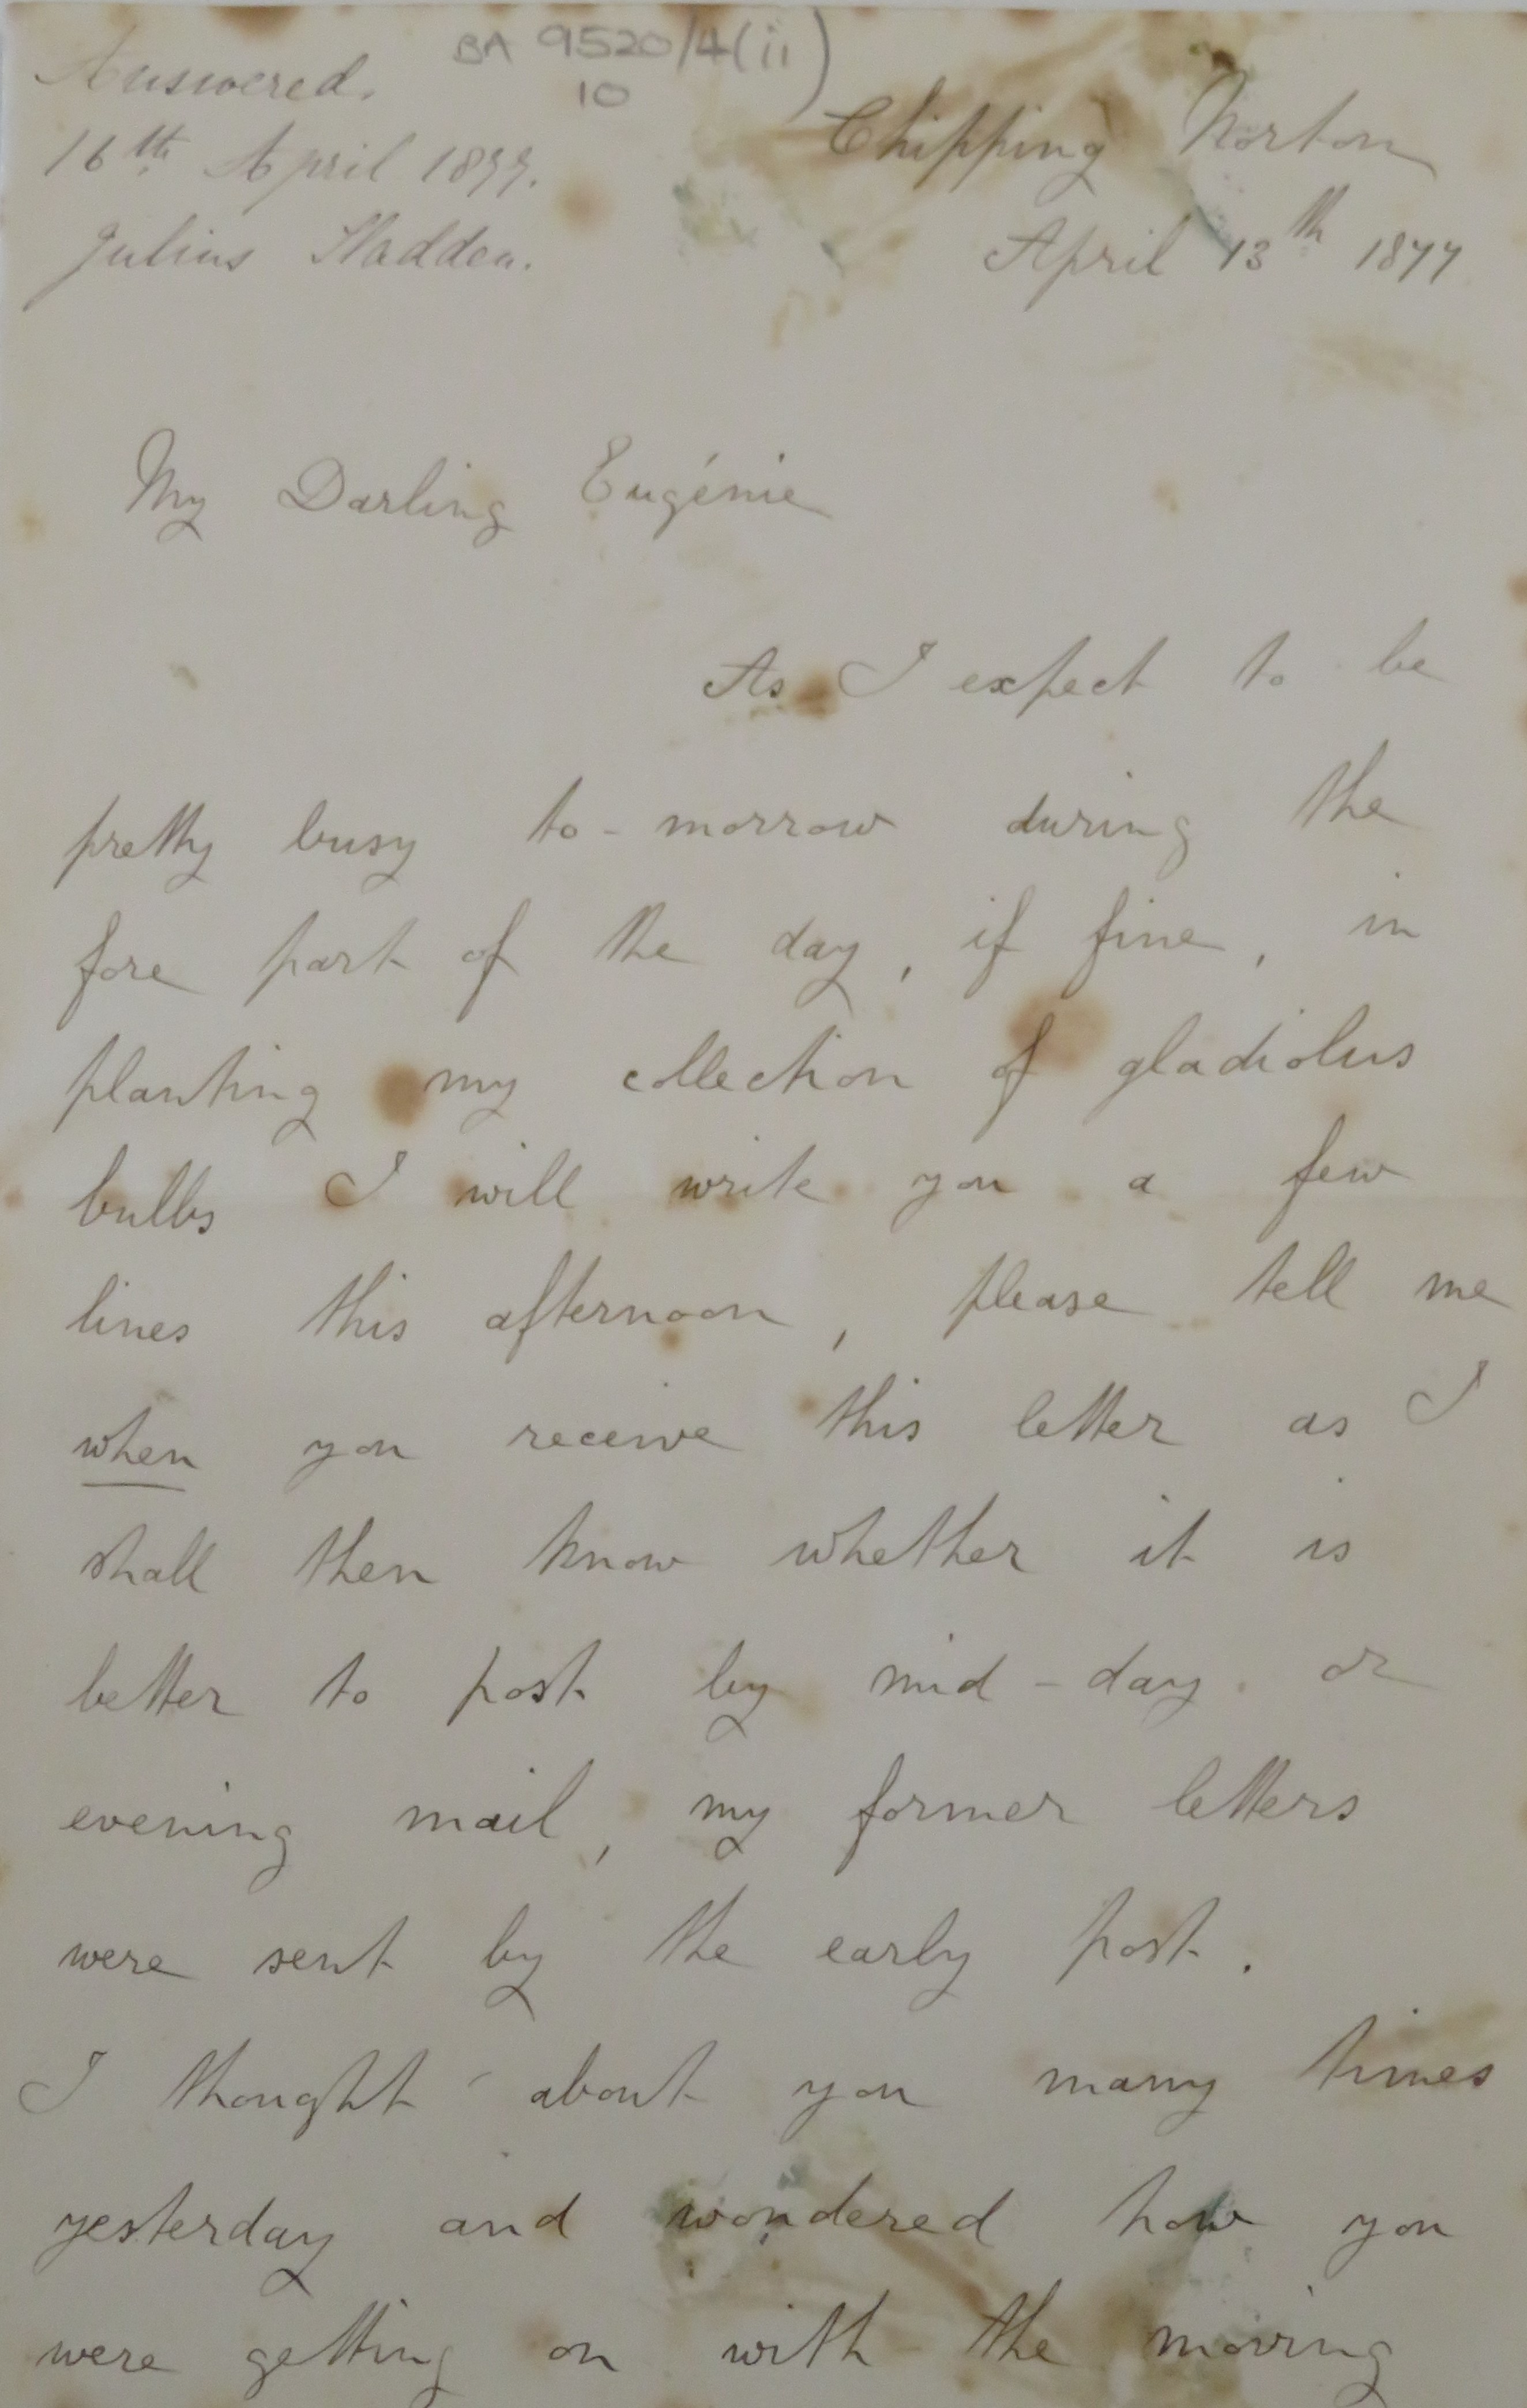 BA 9520/4(ii)
10
Answered.
16th. April 1877.
Julius Sladden.
Chipping Norton
April 13th 1877
My Darling Eugénie
As I expect to be
pretty busy to-morrow during the
fore part of the day, if fine, in
planting my collection of gladiolus
bulbs I will write you a few
lines this afternoon, please tell me
when you receive this letter as I
shall then know whether it is
better to post by mid-day or
evening mail, my former letters
were sent by the early post.
I thought about you many times
yesterday and wondered how you
were getting on with the moving